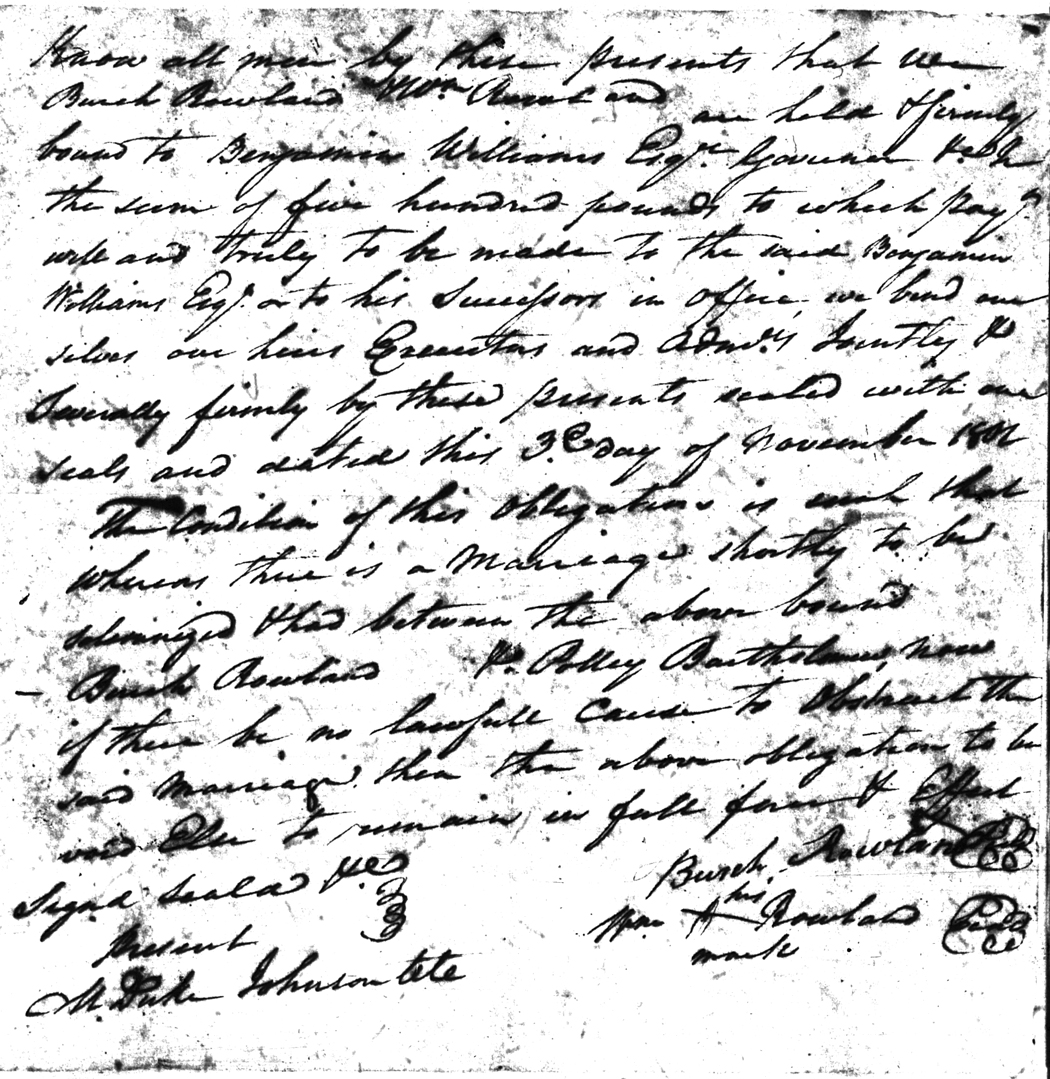 Know all men by these presents that we
Burch Rowland & Wm Rowland are held & firmly
bound to Benjamin Williams Esqr. Governor &c In
the sum of five hundred pounds to which pay.t
well and truly to be made to the said Benjamin
Williams Esqr. or to his Successors in office, we bind our
selves our heirs Executors and Admrs. Jointly &
Severally firmly by these presents sealed with our
seals and dated this 3.d day of November 1801
The Condition of this Obligation is such that
whereas there is a Marriage shortly to be
solemnized & had between the above bound
Burch Rowland & Polley Bartholomew, now
if there be no lawfull Cause to Obstruct the
said Marriage. then the above obligation to be
void Else to remain in full force & Effect
Signd Seald &c
Burch Rowland Seal
his
present
Wm + Rowland Seal
mark
M. Duke Johnson